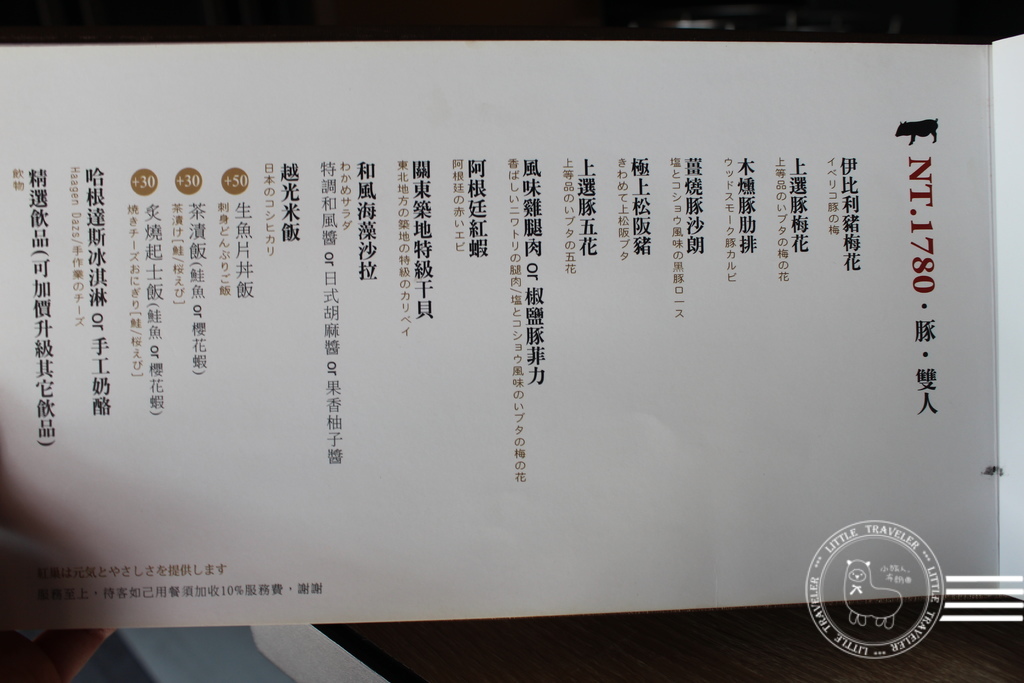 NT.1780・豚・雙人
伊比利豬梅花
イベリコ豚の梅
上選豚梅花
上等品のいブタの梅の花
木燻豚肋排
ウッドスモーク豚カルビ
薑燒豚沙朗
塩とコショウ風味の黒豚ロース
極上松阪豬
きわめて上松阪ブタ
上選豚五花
上等品のいブタの五花
風味雞腿肉 or 椒鹽豚菲力
香ばしいニワトリの腿肉/塩とコショウ風味のいブタの梅の花
阿根廷紅蝦
阿根廷の赤いエビ
關東築地特級干貝
東北地方の築地の特級のカリベイ
和風海藻沙拉
わかめサラダ
特調和風醬 or 日式胡麻醬 or 果香柚子醬
越光米飯
日本のコシヒカリ
+50 生魚片丼飯
刺身どんぶりご飯
+30 茶漬飯(鮭魚 or 櫻花蝦)
茶漬け[鮭/桜えび]
+30 炙燒起士飯(鮭魚 or 櫻花蝦)
焼きチーズおにぎり[鮭/桜えび]
哈根達斯冰淇淋 or 手工奶酪
Haagen Dazs/手作業のチーズ
精選飲品(可加價升級其它飲品)
飲物
は元気とやさしさを提供します
服務至上，待客如己用餐須加收10%服務費，謝謝
LITTLE TRAVELER
LITTLE TRAVELER
LITTLE TRAVELER
小旅人